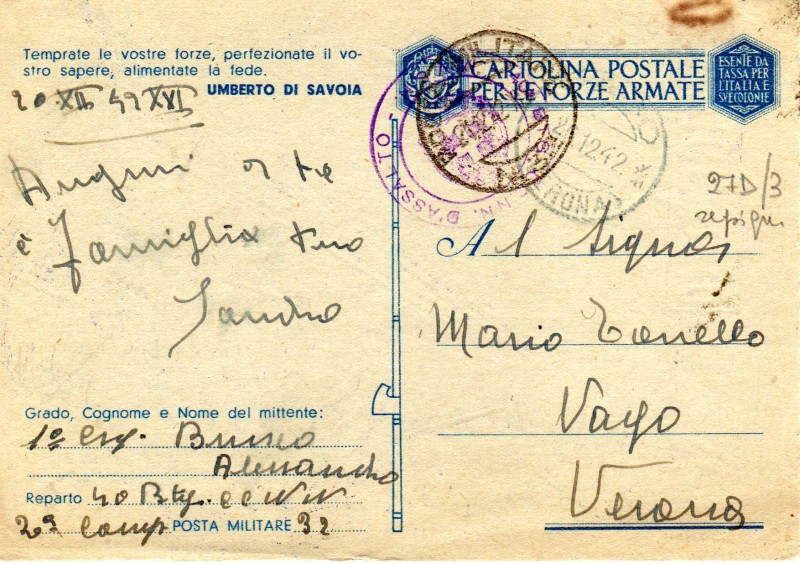 Temprate le vostre forze, perfezionate il vo-
stro sapere, alimentate la fede.
UMBERTO DI SAVOIA
20 XII 42 XXI
Auguri a te
e famiglia tuo
Sandro
Grado, Cognome e Nome del mittente:
1º
Alessandro
Reparto 40 Btg. cc NN
2ª Comp POSTA MILITARE 32
CARTOLINA POSTALE
PER LE FORZE ARMATE
ESENTE DA
TASSA PER
L'ITALIA E
SVE COLONIE
NN. D'ASSALTO
12.42
27D/3
Al Signor
Mario Tonello
Vago
Verona